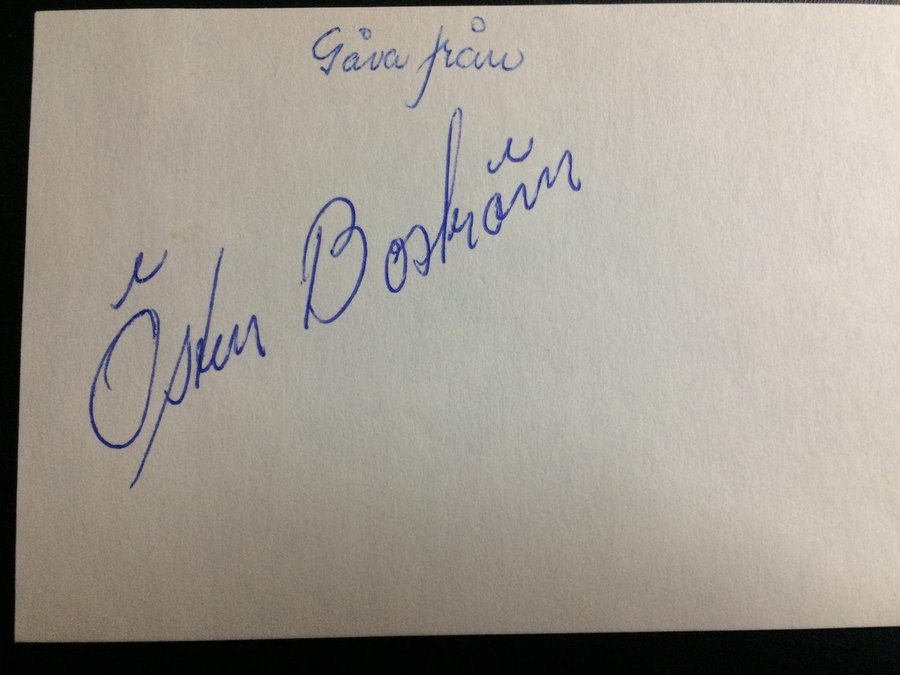 Gåva från
Östen Boström